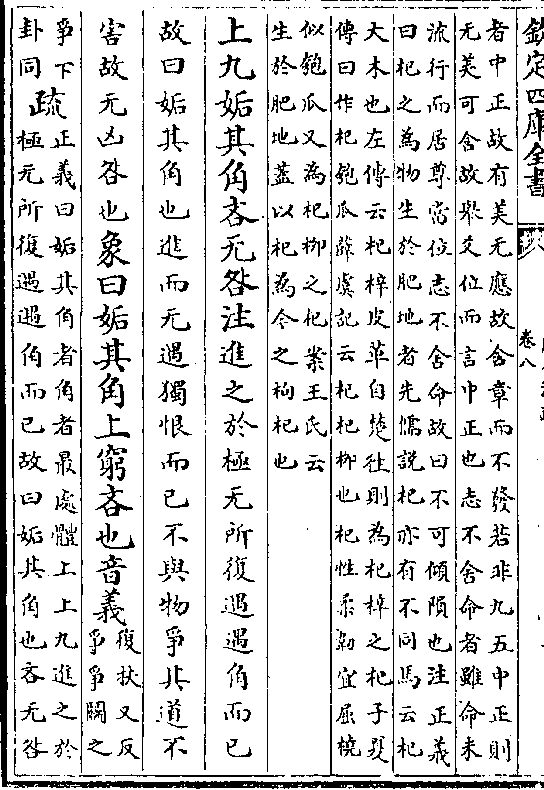 欽定四庫全書
卷八
者中正故有美无應故含章而不發若非九五中正則
无美可含故舉爻位而言中正也志不舍命者雖命未
流行而居尊當位志不舍命故曰不可傾隕也注正義
曰杞之為物生於肥地者先儒説杞亦有不同馬云杞
大木也左傳云杞梓皮革自楚往則為杞梓之杞子夏
傳曰作杞匏瓜薛虞記云杞杞柳也杞性柔韌宜屈橈
似匏瓜又為杞柳之杞案王氏云
生於肥地蓋以杞為今之枸杞也
上九姤其角吝无咎注進之於極无所復遇遇角而已
故曰姤其角也進而无遇獨恨而已不與物爭其道不
害故无凶咎也象曰姤其角上窮吝也音義復扶又反爭爭鬬之
爭下卦同疏正義曰姤其角者角者最處體上上九進之於極无所復遇遇角而已故曰姤其角也吝无咎